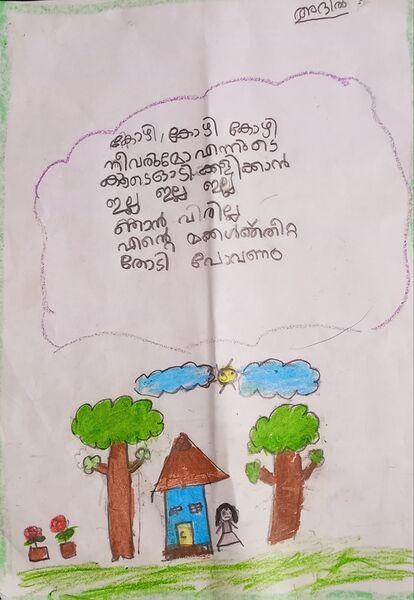 അദിൽ
കോഴി, കോഴി കോഴി
നീവരുമോഎന്നുടെ
കൂടെഓടികളിക്കാൻ
ഇല്ല ഇല്ല ഇല്ല
ഞാൻ വിരില്ല
എന്റെ
തോടി പോവണം